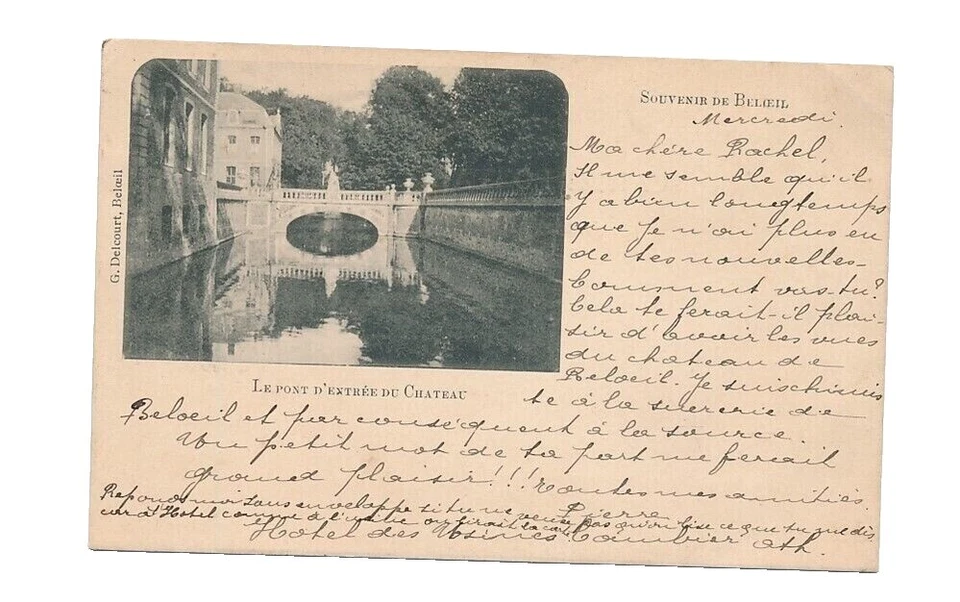 SOUVENIR DE BELŒIL
Mercredi.
Ma chère Rachel,
Il me semble qu'il
y a bien longtemps
que je n'ai plus eu
de tes nouvelles-
Comment vas-tu?
Cela te ferait-il plai-
sir d'avoir les vues
du chateau de
Beloeil. Je suis chimis
te à la sucrerie de
G. Delcourt, Belœil
LE PONT D'ENTRÉE DU CHATEAU
Beloeil et par conséquent à la source.
Un petit mot de ta part me ferait
grand plaisir!!! Toutes mes amitiés.
Pierre
Reponds moi sous enveloppe si tu ne veux pas qu'on lise ce que tu me dis
car à l'Hotel comme à l'usine on lirait la carte
Hotel des Usines Cambier Ath.